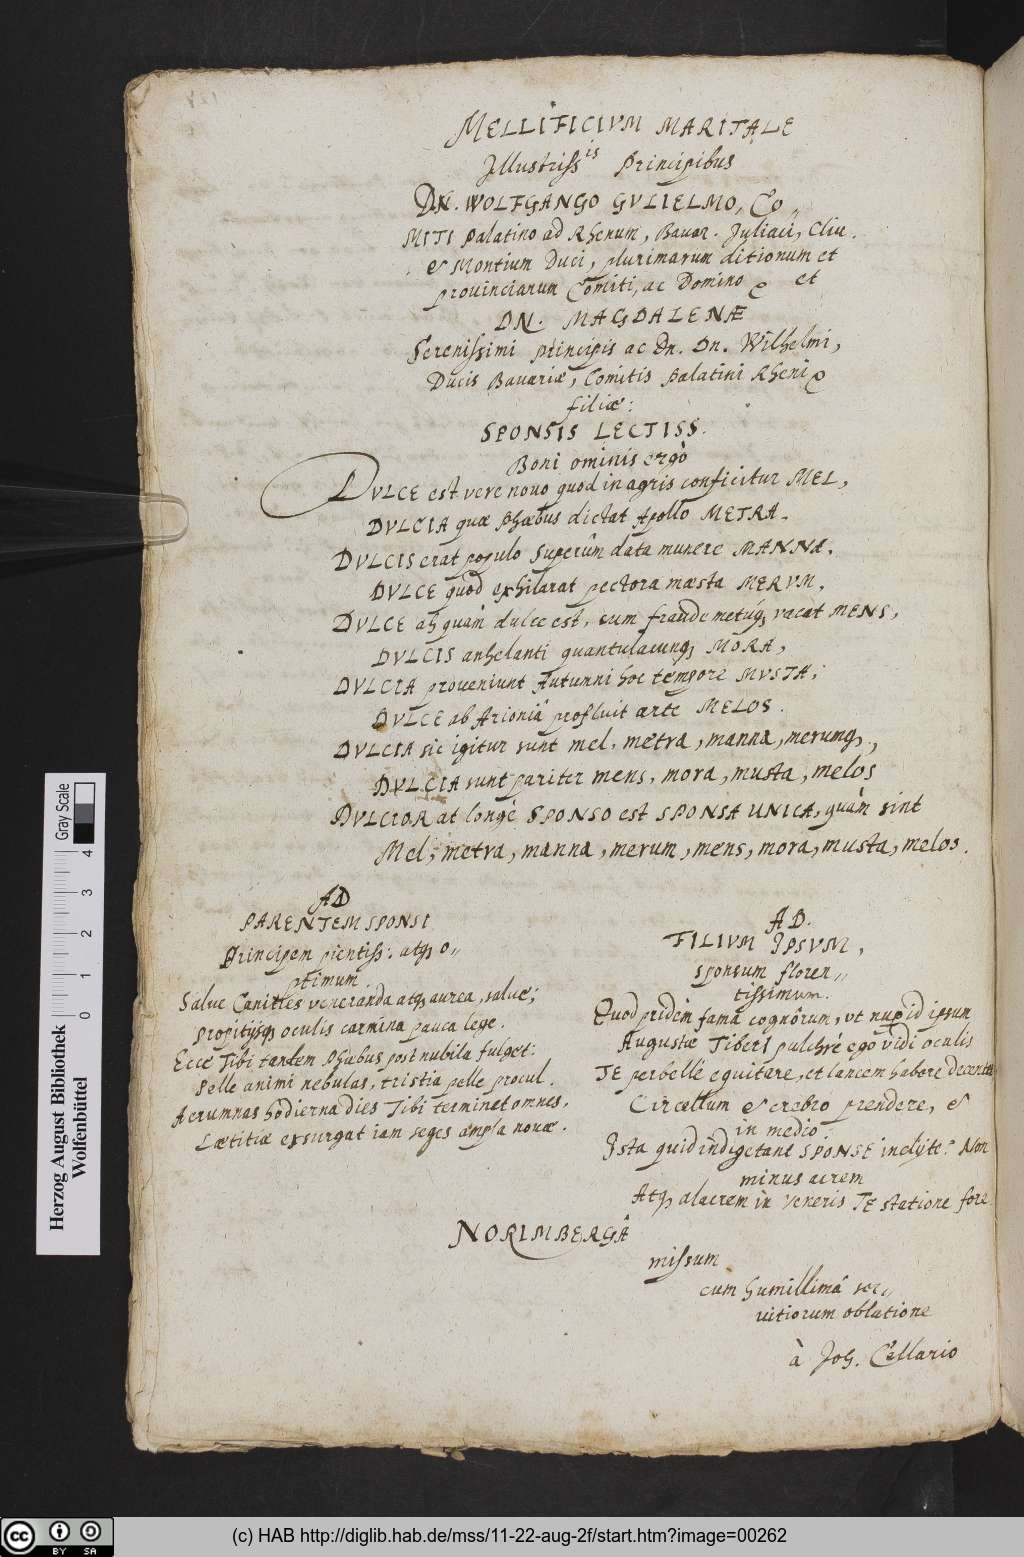 MELLIFICIUM MARITALE
Illustriss^is Principibus
DN. WOLFGANGO GULIELMO, CO„
MITI Palatino ad Rhenum, Bavar. Juliaci, Cliv.
& Montium Duci, plurimarum ditionum et
provinciarum Comiti, ac Domino et
DN. MAGDALENÆ
Serenissimi principis ac Dn. Dn. Wilhelmi,
Ducis Bavariæ, Comitis Palatini Rheni
filiæ:
SPONSIS LECTISS.
Boni ominis ergò
DVLCE est vere novo quod in agris conficitur MEL,
DVLCIA quæ Phœbus dictat Apollo METRA.
DVLCIS erat populo Superûm data munere MANNA,
DVLCE quòd exhilarat pectora mæsta MERVM.
DVLCE ah quàm dulce est, cum fraude metúq; vacat MENS,
DVLCIS anhelanti quantulacunq; MORA,
DVLCIA proveniunt Autumni hoc tempore MVSTA;
DVLCE ab Arioniâ profluit arte MELOS.
DVLCIA sic igitur sunt mel, metra, manna, merumq;,
DVLCIA sunt pariter mens, mora, musta, melos
DVLCIOR at longè SPONSO est SPONSA UNICA, quàm sint
Mel, metra, manna, merum, mens, mora, musta, melos.
AD
PARENTEM SPONSI
Principem pientiss: atq; o„
ptimum.
Salve Canities veneranda atq; aurea, salve;
propitijsq; oculis carmina pauca lege.
Ecce Tibi tandem Phœbus post nubila fulget:
Pelle animi nebulas, tristia pelle procul.
Aerumnas hodierna dies Tibi terminet omnes,
Lætitiæ exsurgat iam seges ampla novæ.
AD.
FILIVM IPSVM,
sponsum floren„
tissimum.
Quod pridem famâ cognôrum, ut nup id ipsum
Augustæ Tiberî pulchrè ego vidi oculis
TE perbellè equitare, et lanceam habere decenter
Circellum & crebro prendere, &
in medio.
Ista quid indigetant SPONSE inclyte? Non
minus acrem
Atq; alacrem in Veneris TE statione fore
NORIMBERGÂ
missum
cum humillimâ ser„
vitiorum oblatione
à Joh. Cellario
Herzog August Bibliothek
Wolfenbüttel
0 1 2 3 4
Gray Scale
CC BY SA
(c) HAB http://diglib.hab.de/mss/11-22-aug-2f/start.htm?image=00262